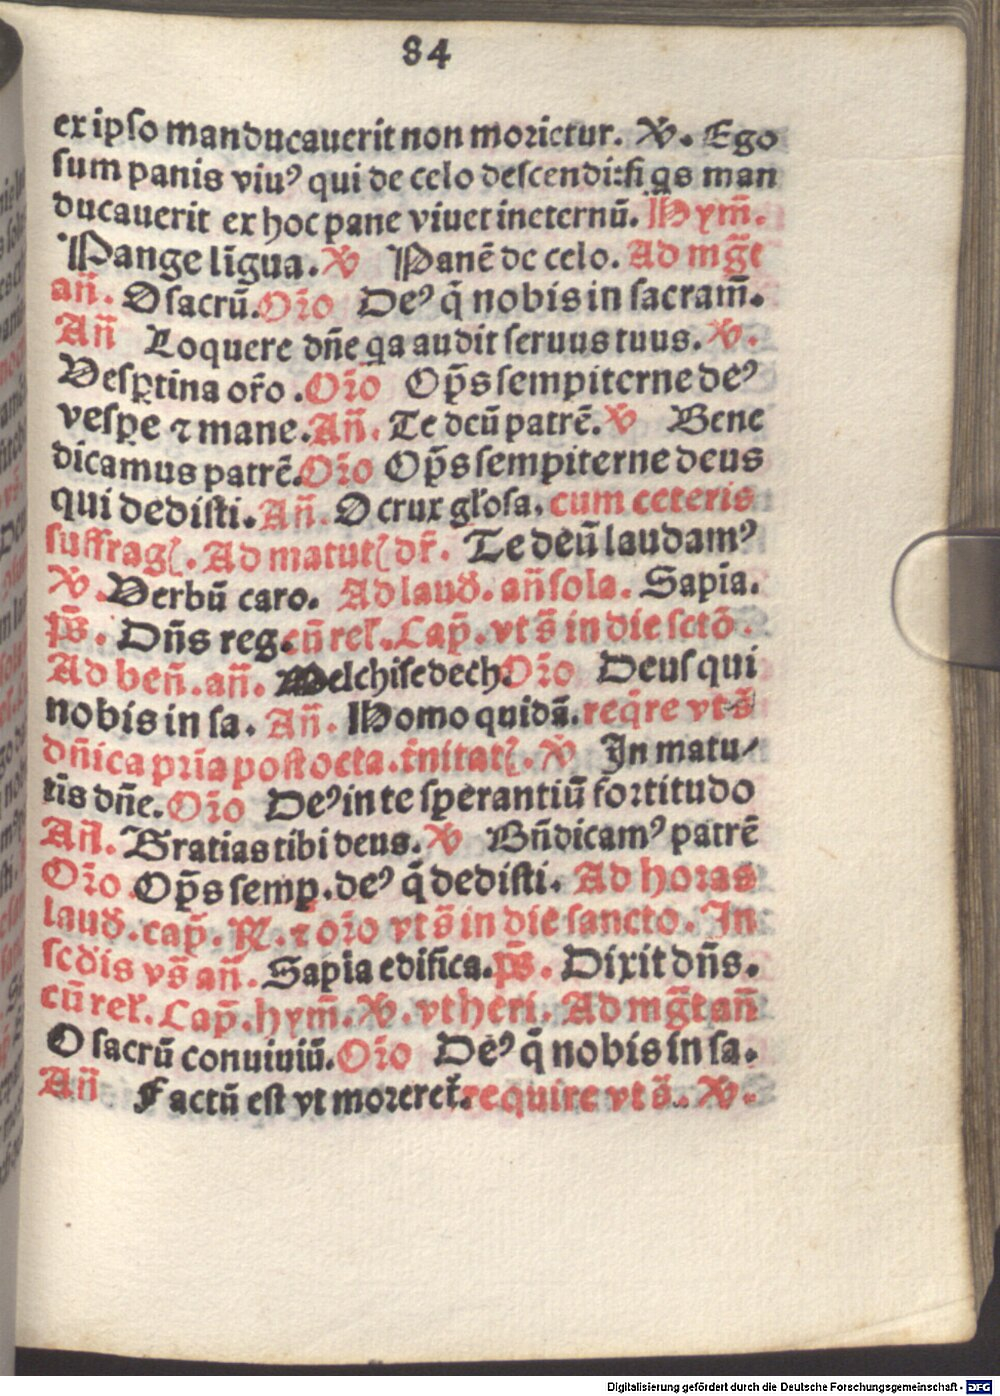 84
ex ipſo manducauerit non morietur. ℣. Ego
ſum panis viuꝰ qui de celo deſcendi: ſi qs man
ducauerit ex hoc pane viuet ineternū. Hym̄.
Pange līgua. ℣ Panē de celo. Ad mḡt
an̄. O ſacrū. Or̄o Deꝰ q̄ nobis in ſacram̄.
An̄ Loquere dn̄e qa audit ſeruus tuus. ℣.
Veſꝑtina or̄o. Or̄o Op̄s ſempiterne deꝰ
veſꝑe ⁊ mane. An̄. Te deū patrē. ℣ Bene
dicamus patrē. Or̄o Op̄s ſempiterne deus
qui dediſti. An̄. O crux gl̄oſa. cum ceteris
ſuffragꝭ. Ad matutꝭ dr̄. Te deū laudamꝰ
℣. Verbū caro. Ad laud̄. an̄ ſola. Sapīa.
p̄s. Dn̄s reg. cū rel̄. Cap̄. vt s̄ in die ſctō.
Ad ben̄. an̄. Melchiſedech Or̄o Deus qui
nobis in ſa. An̄. Homo quidā. req̄re vt s̄
dn̄ica pr̄ia poſt octa. tr̄nitatꝭ. ℣ In matu/
tīs dn̄e. Or̄o Deꝰ in te ſperantiū fortitudo
An̄. Gratias tibi deus. ℣ Bn̄dicamꝰ patrē
Or̄o Op̄s ſemp. deꝰ q̄ dediſti. Ad horas
laud̄. cap̄. ℟. ⁊ or̄o vt s̄ in die ſancto. In
ſcdis vs̄ an̄. Sapīa edifica. p̄s. Dixit dn̄s.
cū rel̄. Cap̄. hym̄. ℣. vt heri. Ad mḡt an̄
O ſacrū conuiuiū. Or̄o Deꝰ q̄ nobis in ſa.
An̄ Factū eſt vt moreret̄. require vt s̄. ℣.
Digitalisierung gefördert durch die Deutsche Forschungsgemeinschaft - DFG